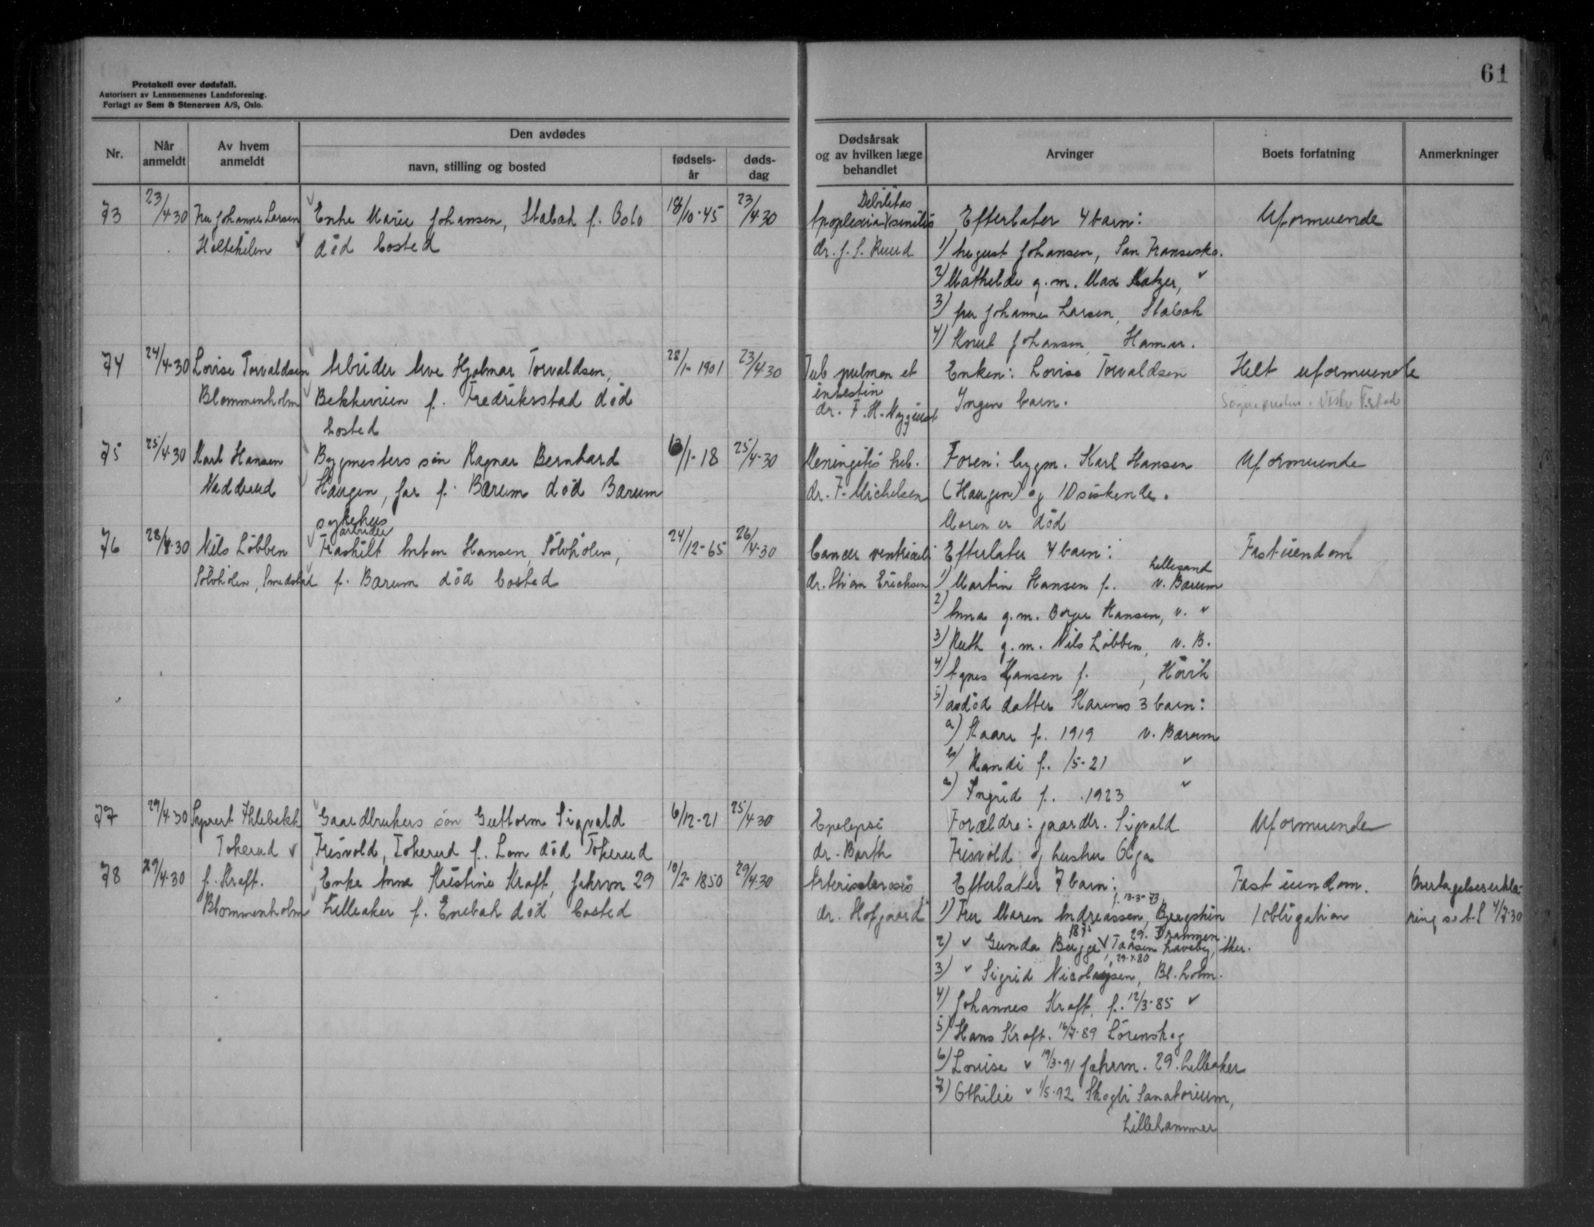 61
Protokoll over dødsfall.
Autorisert av Lensmennenes Landsforening.
Forlagt av Sem & Stenersen A/S, Oslo.
Nr.
Når anmeldt
Av hvem anmeldt
Den avdødes
navn, stilling og bosted
fødsels-år
døds-dag
Dødsårsak og av hvilken læge behandlet
Arvinger
Boets forfatning
Anmerkninger
73 23/4 30 Fru Johanne Larsen Enke Marie Johansen, Stabæk f. Oslo 18/10-45 23/4 30
Høltekilen død bosted
Debilitas
Apoplexia senilis Efterlater 4 barn: Uformuende
dr. J. S. Ruud 1) August Johansen, San Fransisko.
2) Mathilde g.m. Max Katzer, "
3) fru Johanne Larsen, Stabæk
4) Knut Johansen Hamar.
74 24/4-30 Lovise Torvaldsen Arbeider Arve Hjalmar Torvaldsen, 28/1-1901 23/4 30
Blommenholm Bekkeveien f. Fredrikstad død
bosted
Tub pulmon et Enken: Lovise Torvaldsen Helt uformuende
intestin
dr. F. H. Nyquist Ingen barn.
75 25/4-30 Karl Hansen Bygmesters søn Ragnar Bernhard 13/1-18 25/4-30
Nadderud Haugen, før f. Bærum død Bærum
sykehus
Meningitis tub. Faren: bygm. Karl Hansen Uformuende
dr. F. Michelsen (Haugen) og 10 søskende.
Moren er død
76 28/4-30 Nils Løbben arbeider Anton Hansen, Sølvhølen, 24/12-65 26/4-30
Sølvhølen, Smedstad f. Bærum død bosted
Cancer ventriculi Efterlater 4 barn: Fast eiendom
dr. Stian Erichsen 1) Martin Hansen f. Lillesand v. Bærum
2) Anna g.m. Borger Hansen, v. "
3) Ruth g.m. Nils Løbben, v. B.
4) Agnes Hansen f. , Høvik
5) avdød datter Karens 3 barn:
a) Kaare f. 1919 v. Bærum
b) Randi f. /5-21 "
c) Ingrid f. 1923 "
77 29/4 30 Syvert Klebekk Gaardbrukers søn Guttorm Sigvald 6/12-21 25/4 30
Tokerud Frisvold, Tokerud f. Lom død Tokerud
Epelepsi Forældre: gaardbr. Sigvald Uformuende
dr. Barth Frisvold og hustru Olga
78 29/4-30 J. Kraft. Enke Anne Kristine Kraft, Jahrvn 29 10/2-1850 29/4-30
Blommenholm Lilleaker f. Enebak død bosted
Arteriosclerosis Efterlater 7 barn: Fast eiendom. Overtagelseserklæ-
dr. Hofgaard 1) Fru Maren Andreassen, Bergstien 1 obligation ring
29. Drammen.
2) " Gunda Berge Taasen haveby, Aker.
3) " Sigrid Nicolaysen, Bl.holm.
4) Johannes Kraft, f. 12/3-85 "
5) Hans Kraft. Lørenskog
6) Louise " 19/3-91 Jahrvn. 29. Lilleaker
7) Othilie " 1/5-92 Skogli Sanatorium,
Lillehammer